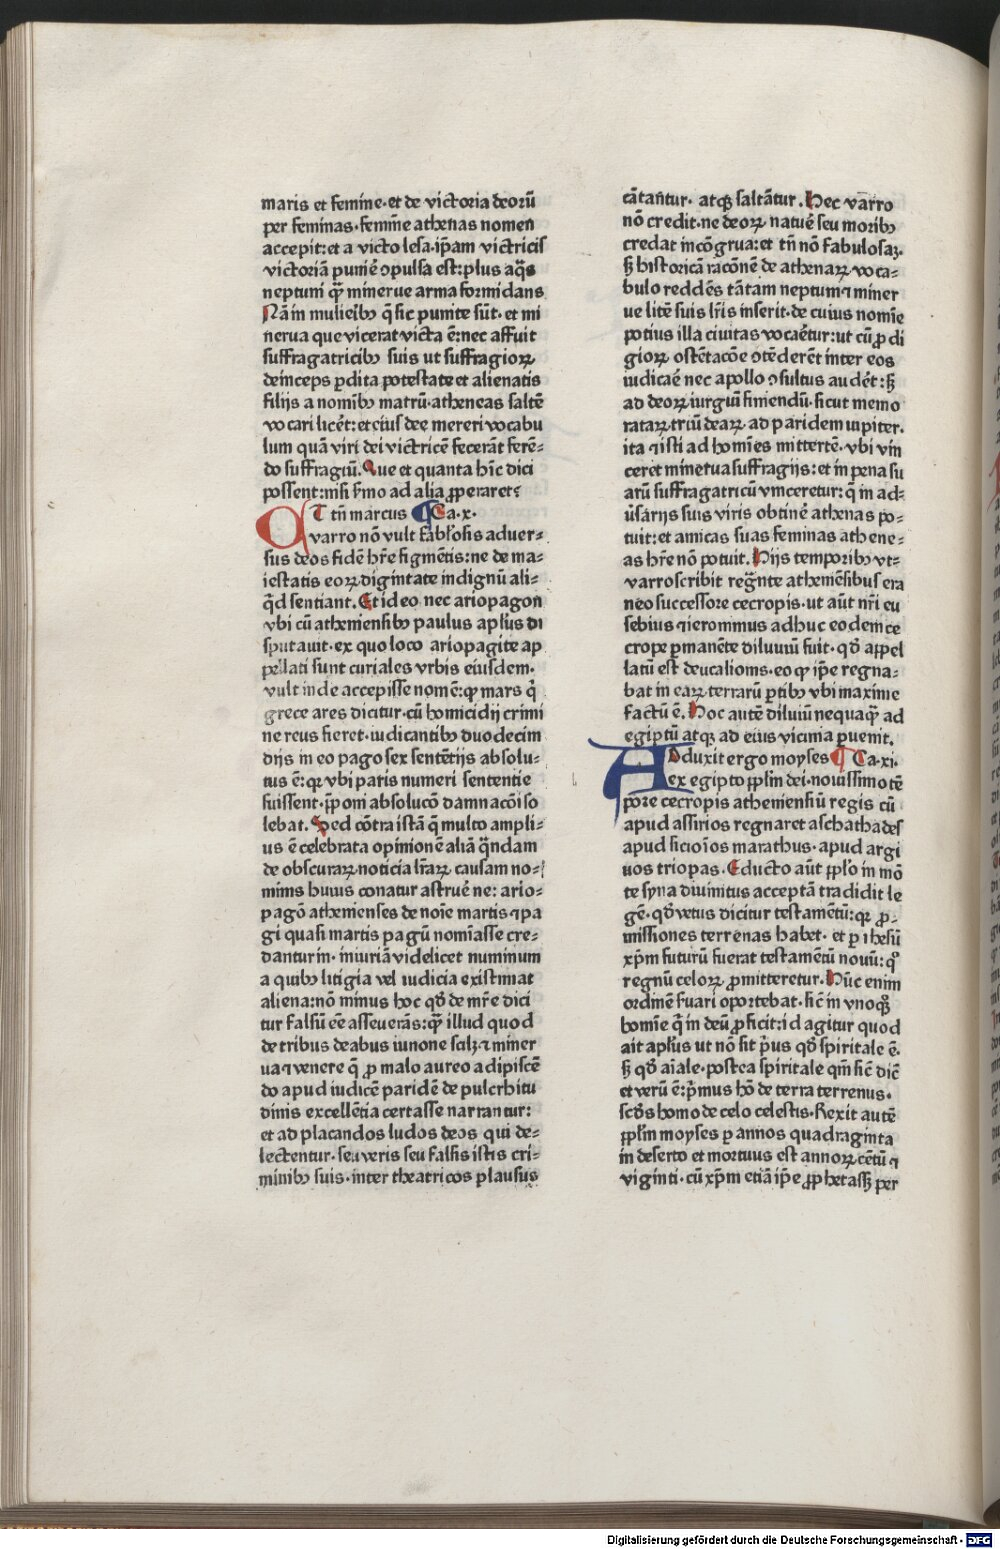 maris et femine·et de victoria deorū
per feminas·femīne athenas nomen
accepit:et a victo lesa·ip̄am victricis
victoriā punir̄e ꝯpulsa est:plus aq̄s
neptuni q̄ꝫ minerue arma formidans
Nā in mulierib⁹ q̄ sic punite sūt· et mi
nerua que vicerat victa ē:nec affuit
suffragatricib⁹ suis ut suffragioꝝ
deinceps ꝑdita potestate et alienatis
filijs a nomīb⁹ matrū·atheneas saltē
vocari licēt:et eius dee mereri vocabu
lum quā viri dei victricē fecerāt ferē-
do suffragiū.Que et quanta hīc dici
possent:nisi s̄mo ad alia ꝓperaret:
ET tn̄ marcus Ca.x.
varro nō vult fabulosis aduer-
sus deos fidē hr̄e figmētis:ne de ma-
iestatis eoꝝ digintate indignū ali-
q̄d sentiant.Et ideo nec ariopagon
vbi cū atheniensib⁹ paulus apl̄us di
sputauit·ex quo loco ariopagite ap
pellati sunt curiales vrbis eiusdem·
vult inde accepisse nomē:ꝙ mars q̄
grece ares dicitur·cū homicidij crimi
ne reus fieret·iudicantib⁹ duodecim
dijs in eo pago sex sentētijs absolu-
tus ē:qꝛ vbi paris numeri sententie
fuissent·p̄poni absolucō damnacōi so
lebat.Sed cōtra istā q̄ multo ampli-
us ē celebrata opinionē aliā q̄ndam
de obscuraꝝ noticia lr̄aꝝ causam no-
minis huius conatur astruer̄e ne: ario-
pagō athenienses de noīe martis ⁊pa
gi quasi martis pagū nomīasse cre-
dantur in·iniuriā videlicet numinum
a quib⁹ litigia vel iudicia existimat
aliena:nō minus hoc qd̄ de mr̄e dici
tur falsū eē asseuerās:q̄ꝫ illud quod
de tribus deabus iunone scilꝫ ⁊miner
ua ⁊venere q̄ ꝓ malo aureo adipiscē
do apud iudicē paridē de pulcrhitu
dinis excellētia certasse narrantur:
et ad placandos ludos deos qui de-
lectentur·seu veris seu falsis istis cri-
minib⁹ suis·inter theatricos plausus
cātantur· atqꝫ saltātur.Hec varro
nō credit·ne deoꝝ natur̄e seu morib⁹
credat incōgrua:et tn̄ nō fabulosaꝫ·
sꝫ historicā racōnē de athenaꝝ voca-
bulo reddēs tātam neptuni ⁊miner
ue litē suis lr̄is inserit·de cuius nomīe
potius illa ciuitas vocarētur:ut cū ꝓdi
gioꝝ ostētacōe ꝯtēderēt inter eos
iudicar̄e nec apollo ꝯsultus auderet:sꝫ
ad deoꝝ iurgiū finiendū·sicut memo
rataꝝ triū deaꝝ ad paridem iupiter·
ita ⁊isti ad homīes mitterēt·vbi vin
ceret minerua suffragijs:et in pena su
arū suffragatricū vinceretur:q̄ in ad-
ūsarijs suis viris obtiner̄e athenas po-
tuit:et amicas suas feminas athene-
as hr̄e nō potuit.Hijs temporib⁹ vt-
varro scribit regn̄te atheniēsibus cra
neo successore cecropis·ut aūt nr̄i eu
sebius ⁊ieronimus adhuc eodem ce
crope ꝑmanēte diluuiū fuit·qd̄ appel
latū est deucalionis·eo ꝙ ip̄e regna-
bat in eaꝝ terrarū ꝑtib⁹ vbi maxime
factū ē.Hoc autē diluiū nequaq̄ꝫ ad
egiptū atqꝫ ad eius vicinia ꝑuenit.
ADduxit ergo moyses Ca.xi.
ex egipto pp̄lm dei·nouissimo tē
pore cecropis atheniensiū regis cū
apud assirios regnaret aschathades
apud sicioīos marathus·apud argi
uos triopas.Educto aūt pp̄lo in mō
te syna diuinitus acceptā tradidit le
gē·qd̄ vetus dicitur testamētū:qꝛ ꝓ-
missiones terrenas habet· et ꝑ ihesū
xp̄m futurū fuerat testamētū nouū:qͦ
regnū celoꝝ ꝓmitteretur.Hūc enim
ordinē suari oportebat·sic̄ in vnoqͦqꝫ
homīe q̄ in deū ꝓficit:id agitur quod
ait apl̄us ut nō sit p̄us qd̄ spiritale ē·
sꝫ qd̄ aīale·postea spiritale qm̄ sic̄ dic̄
et verū ē:p̄mus hō de terra terrenus·
scd̄s homo de celo celestis·Rexit autē
pp̄lm moyses ꝑ annos quadraginta
in deserto et mortuus est annoꝝ cētū ⁊
viginti·cū xp̄m etiā ip̄e ꝓphetassꝫ per
Digitalisierung gefördert durch die Deutsche Forschungsgemeinschaft - DFG